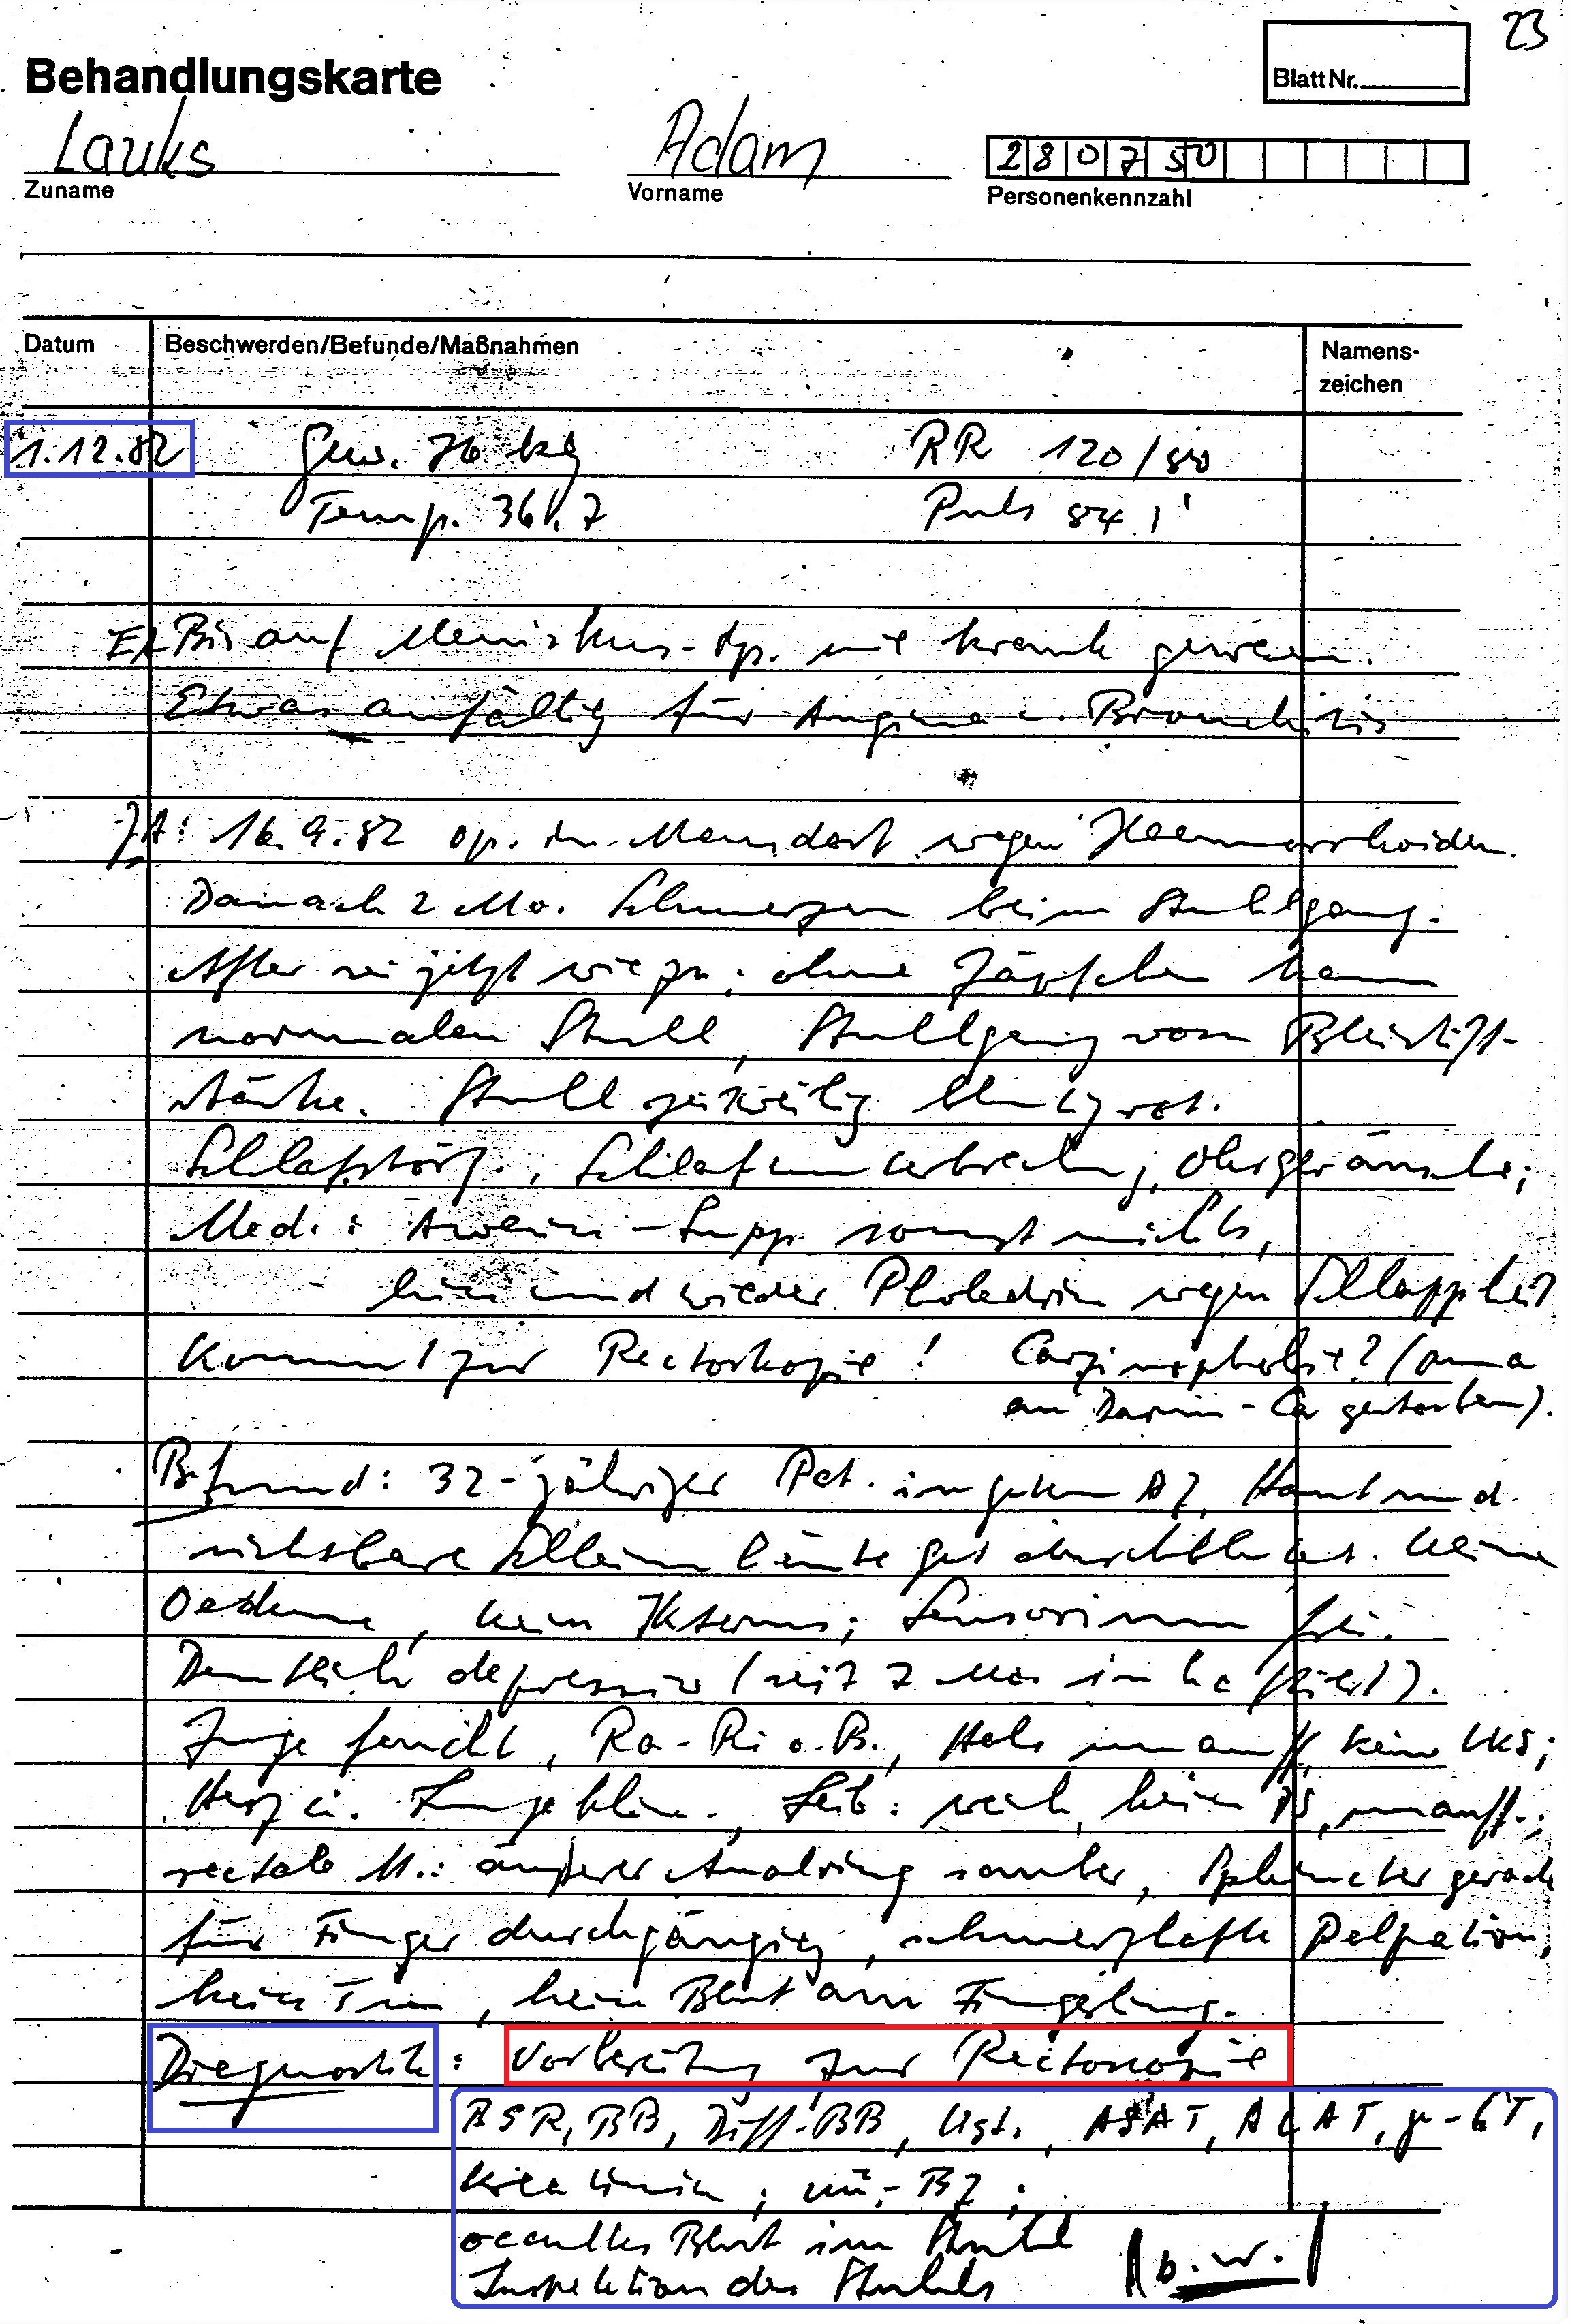 23
Behandlungskarte
Blatt Nr.
Lauks Adam 280750
Zuname Vorname Personenkennzahl
Datum Beschwerden/Befunde/Maßnahmen Namens-
zeichen
1.12.82 Gew. 76 kg RR 120/80
Temp. 36,7 Puls 84 1'
EA Bis auf Meniskus-Op. nie krank gewesen.
Etwas anfällig für Angina u. Bronchitis
JA: 16.9.82 op. in wegen Haemorrhoiden.
Danach 2 Mo. Schmerzen beim Stuhlgang.
After sei jetzt wie zu; ohne Zäpfchen kein
normalen Stuhl, Stuhlgang von Bleistift-
stärke. Stuhl zeitweilig blutig rot.
Schlafstörg., Schlafunterbrechg, Ohrgeräusche;
Med.: -Supp. sonst nichts,
hin und wieder Pholedrin wegen Schlappheit
Kommt zur Rectoskopie! Carzinophobie? (Oma
an Darm-Ca gestorben).
Befund: 32-jähriger Pat. in gutem AZ, Haut und
sichtbare Schleimhäute gut durchblutet. Keine
Oedeme, kein Ikterus; Sensorium frei.
Deutlich depressiv (seit 7 Mo. inhaftiert).
Zunge feucht, Ra-Ri o.B., Hals unauff, keine LKS;
Herz u. Lunge klin. , Leib: weich, kein DS, unauff.;
rectale U.: äußerer Analring sauber, Sphincter gerade
für Finger durchgängig, schmerzhafte Palpation,
kein Tu , kein Blut am Fingerling.
Diagnostik: Vorbereitung zur Rectoskopie
BSR, BB, Diff.-BB, Ugst., ASAT, ALAT, γ-GT,
Kreatinin; nü.-BZ;
occultes Blut im Stuhl
Inspektion des Stuhls b.w.